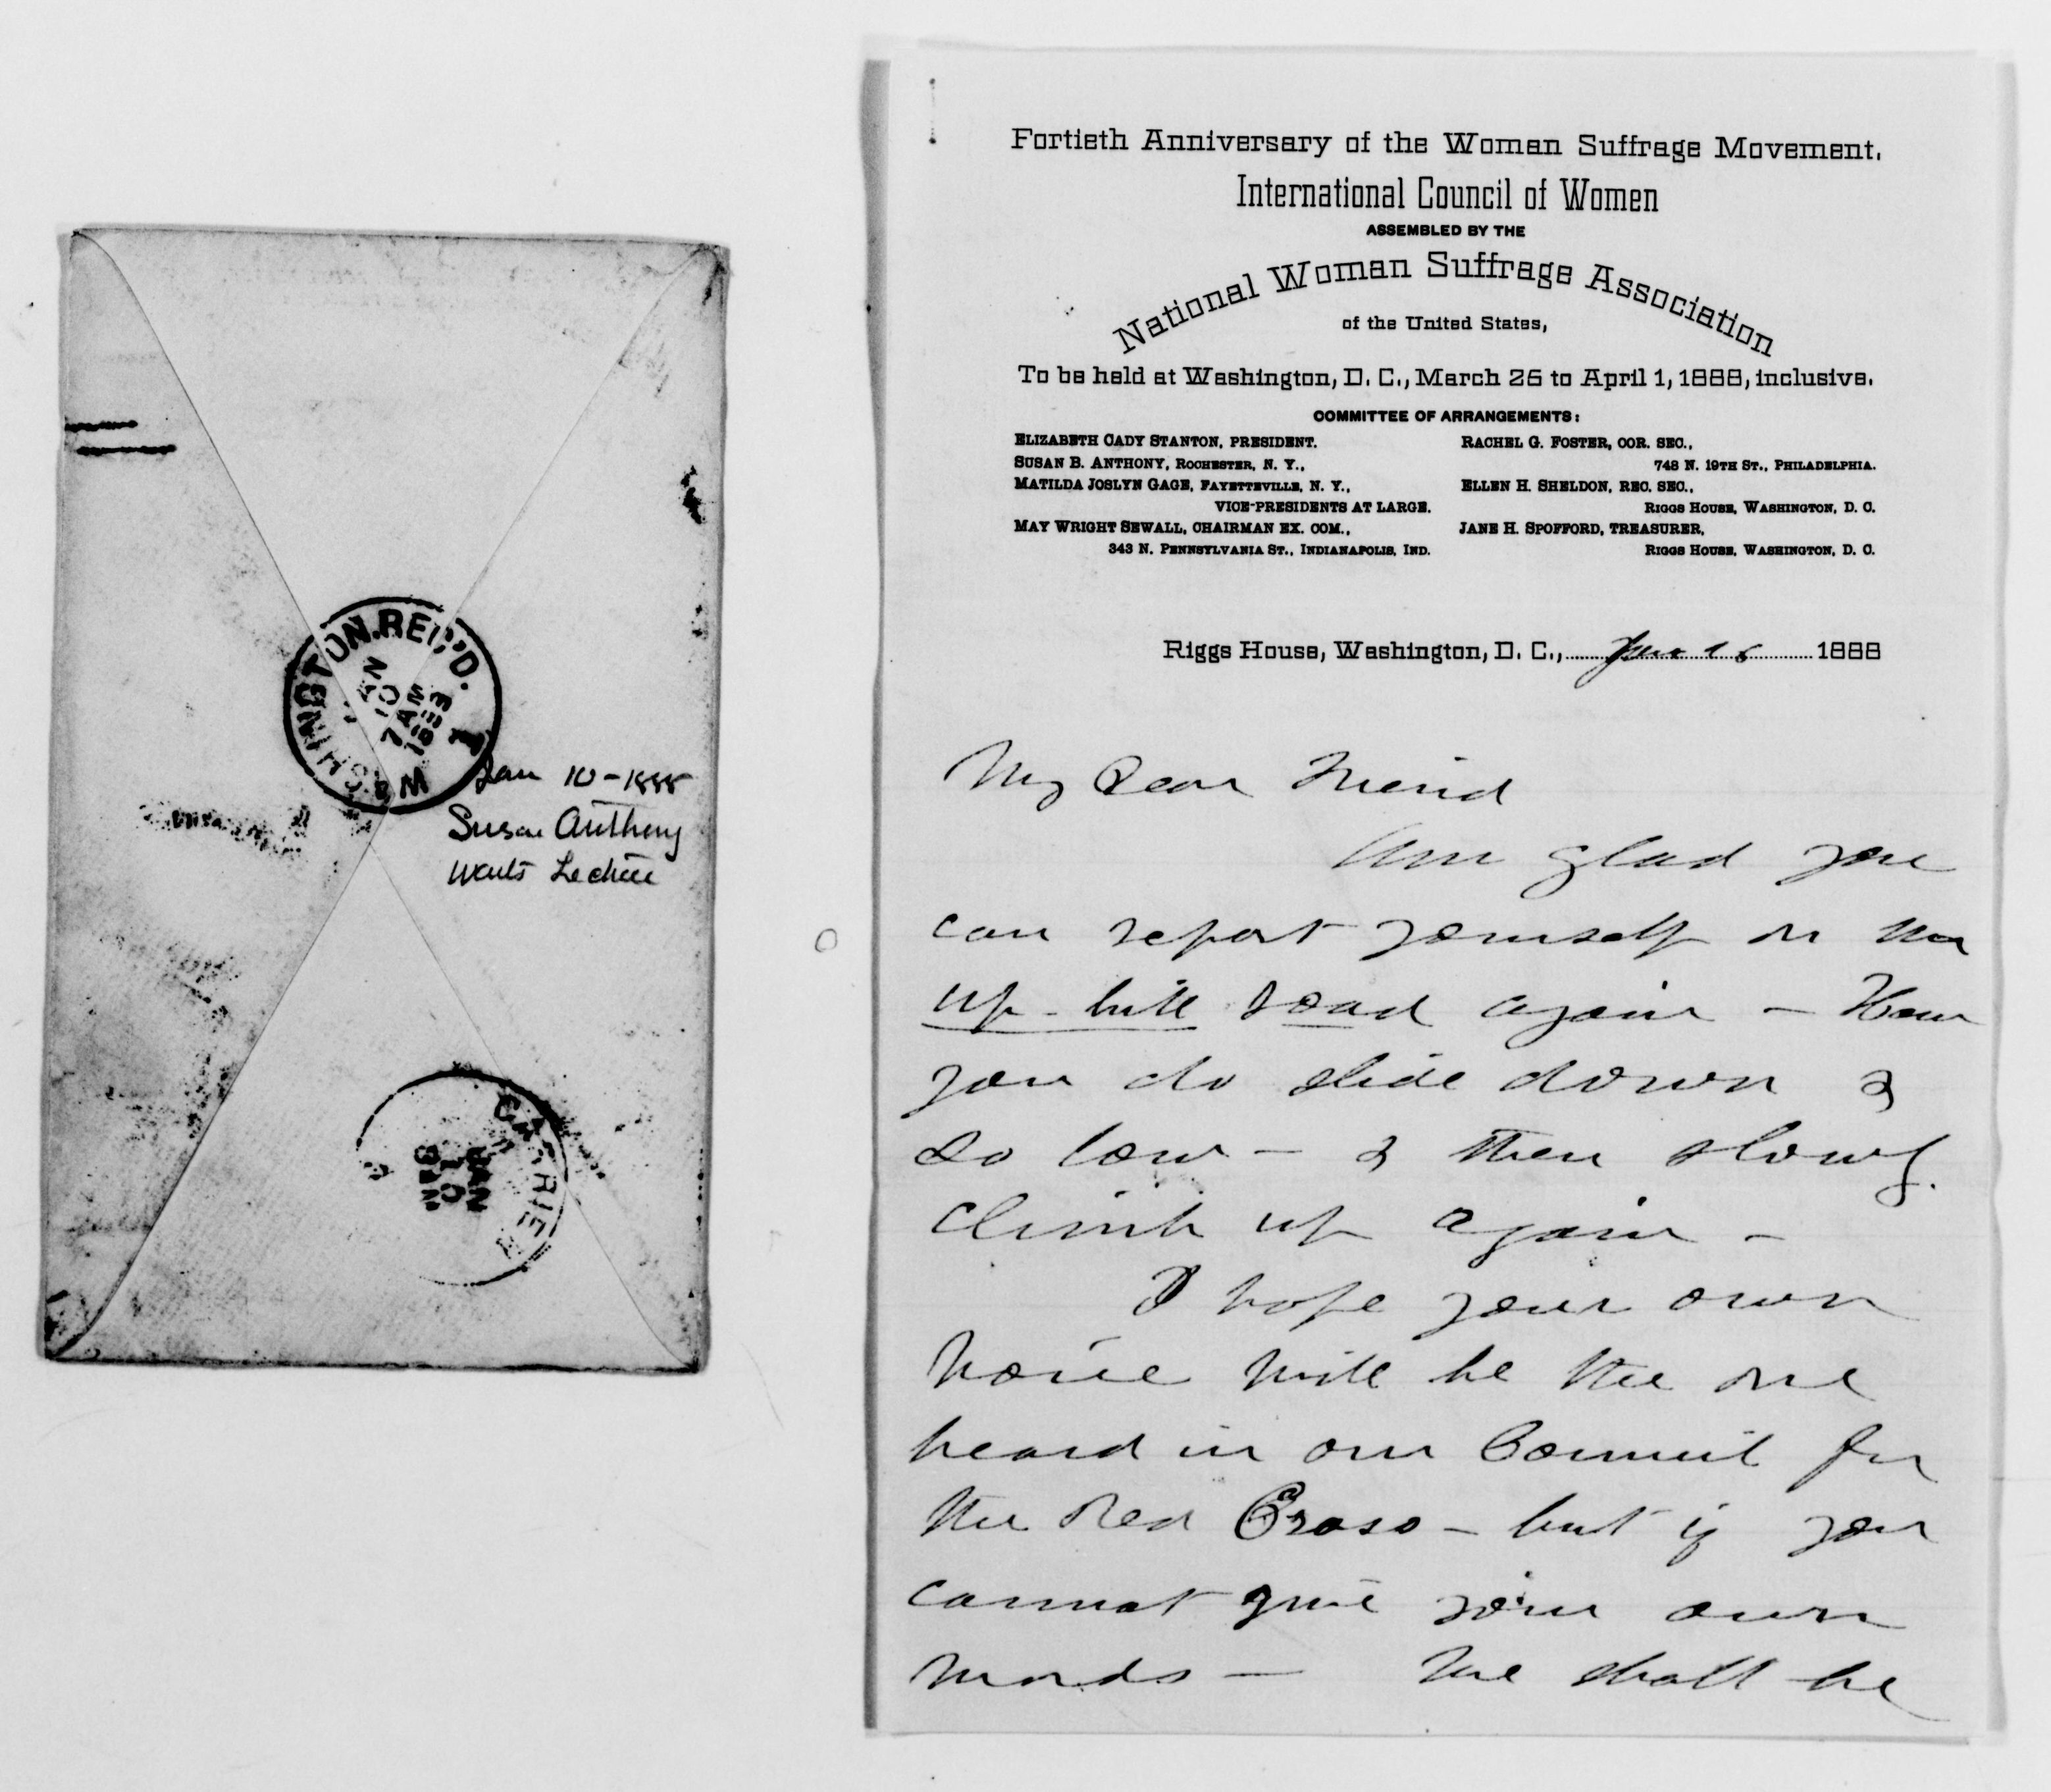 WASHINGTON, REC'D.
JAN
10
7 AM
1888
1
Jan 10-1888
Susan Anthony
wants Lecture
CARRIER
JAN
10
Fortieth Anniversary of the Woman Suffrage Movement.
International Council of Women
ASSEMBLED BY THE
National Woman Suffrage Association
of the United States,
To be held at Washington, D. C., March 25 to April 1, 1888, inclusive.
COMMITTEE OF ARRANGEMENTS:
ELIZABETH CADY STANTON, PRESIDENT.
SUSAN B. ANTHONY, ROCHESTER, N. Y.,
MATILDA JOSLYN GAGE, FAYETTEVILLE, N. Y.,
VICE-PRESIDENTS AT LARGE.
MAY WRIGHT SEWALL, CHAIRMAN EX. COM.,
343 N. PENNSYLVANIA ST., INDIANAPOLIS, IND.
RACHEL G. FOSTER, COR. SEC.,
748 N. 19TH ST., PHILADELPHIA.
ELLEN H. SHELDON, REC. SEC.,
RIGGS HOUSE, WASHINGTON, D. C.
JANE H. SPOFFORD, TREASURER,
RIGGS HOUSE, WASHINGTON, D. C.
Riggs House, Washington, D. C., Jan 1888
My Dear Friend
Am glad you
can report yourself on the
up-hill road again - How
you do slide down &
so low - & then slowly
climb up again -
I hope your own
voice will be the one
heard in our Council for
the Red Cross - but if you
cannot give your own
words - We shall be